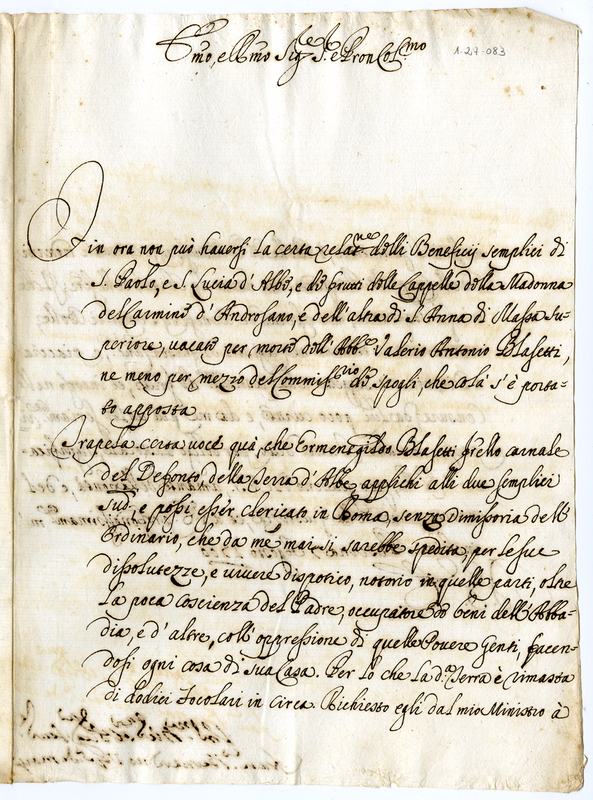 Emo, e Rmo Sig.re S.re e Pron Col.mo
1-27-083
In ora non può haversi la certa relat.ne delli Beneficij semplici di
S. Paolo, e S. Lucia d'Albe, e de frutti delle Cappelle della Madonna
del Carmine d'Androsano, e dell'altra di S. Anna di Massa Su-
periore, vacate per morte dell'Abb.e Valerio Antonio Blasetti,
ne meno per mezzo del Commiss.rio de spogli, che colà s'è porta-
to apposta
Trapela certa voce quà, che Ermenegildo Blasetti frello carnale
del Defonto, della Terra d'Albe applichi alli due semplici
sud.i e possi esser clericato in Roma, senza Dimissoria dell'
Ordinario, che da me mai si sarebbe spedita per le sue
dissolutezze, e vivere dispotico, notorio in quelle parti, oltre
la poca coscienza del Padre, occupatore de beni dell'Abba-
dia, e d'altre, coll'oppressione di quelle Povere Genti, facen-
dosi ogni cosa di sua Casa. Per lo che la d.a Terra è rimasta
di dodici focolari in circa. Richiesto egli dal mio Ministro à